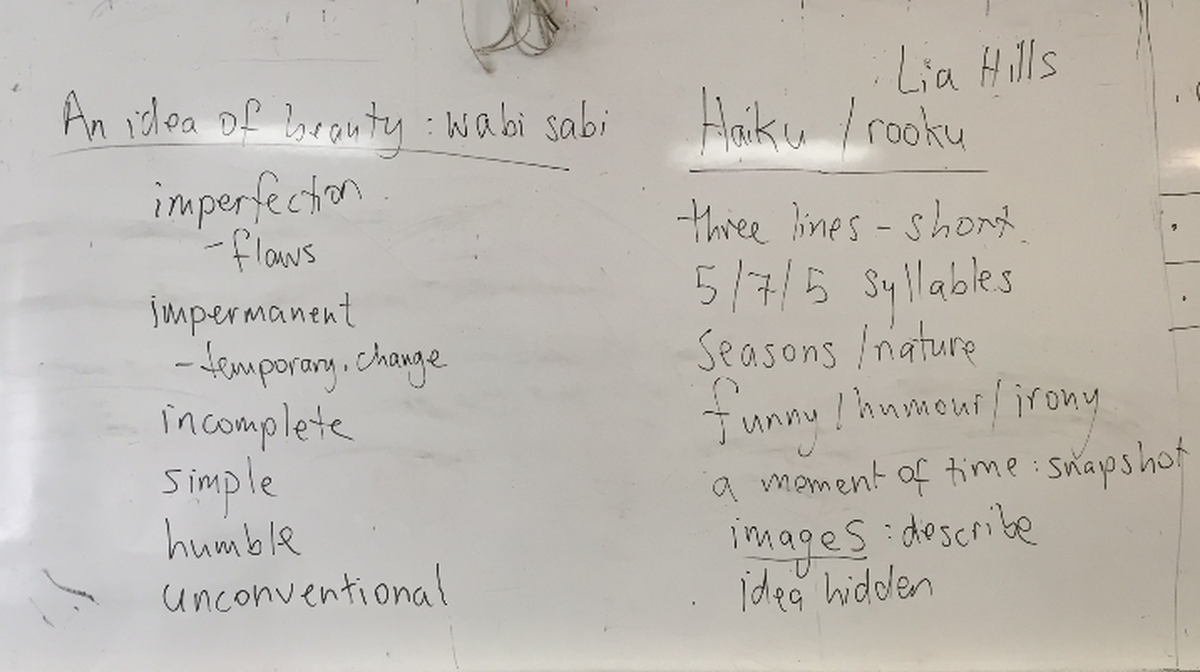 An idea of beauty : wabi sabi
imperfection
- flaws
impermanent
- temporary. change
incomplete
simple
humble
unconventional
Lia Hills
Haiku / rooku
three lines - short
5/7/5 syllables
seasons / nature
funny / humour / irony
a moment of time : snapshot
images : describe
idea hidden